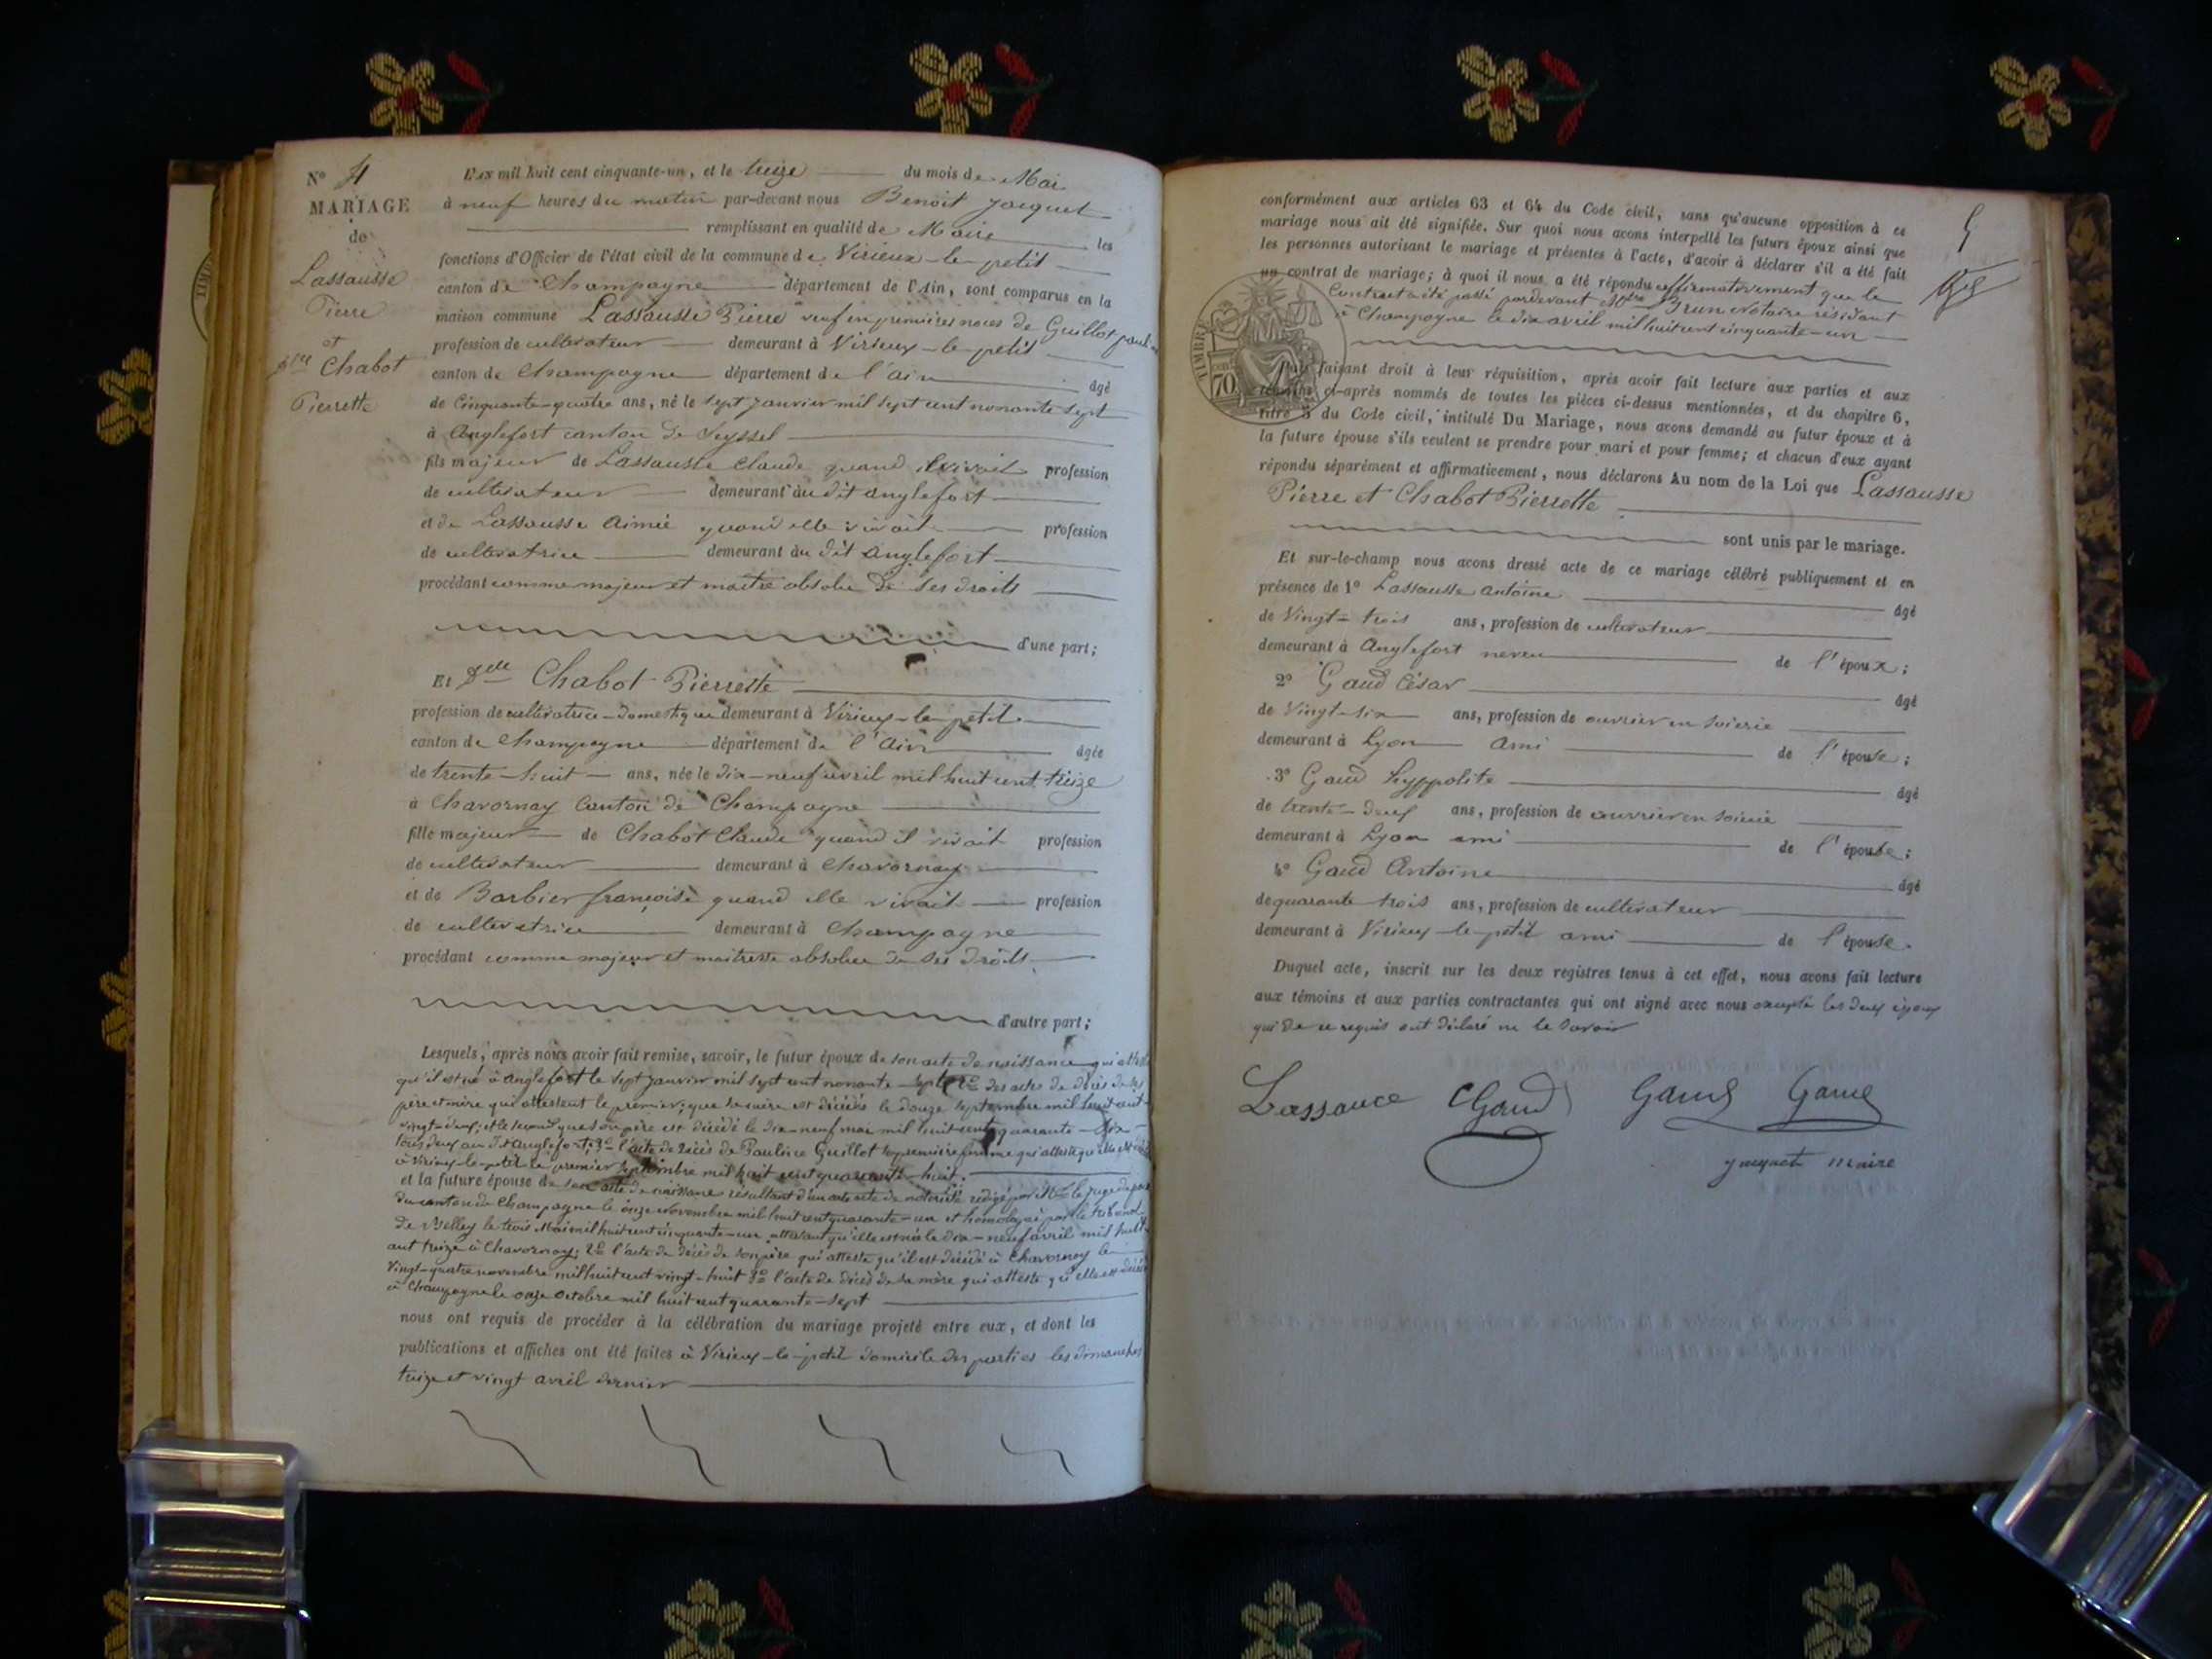 N° 4
MARIAGE
de
Lassausse
Pierre
et
Dlle Chabot
Pierrette
L'an mil huit cent cinquante-un, et le treize du mois de Mai
à neuf heures du matin par-devant nous Benoit Jacquet
remplissant en qualité de Maire les
fonctions d'Officier de l'état civil de la commune de Virieux-le-petit
canton de Champagne département de l'Ain, sont comparus en la
maison commune Lassausse Pierre veuf en premières noces de Guillot pauline
profession de cultivateur demeurant à Virieux-le-petit
canton de Champagne département de l'ain âgé
de Cinquante-quatre ans, né le sept janvier mil sept cent nonante sept
à Anglefort canton de Seyssel
fils majeur de Lassausse Claude quand il vivait profession
de cultivateur demeurant au dit anglefort
et de Lassausse Aimée quand elle vivait profession
de cultivatrice demeurant au dit anglefort
procédant comme majeur et maitre absolu de ses droits
d'une part;
Et Dlle Chabot Pierrette
profession de cultivatrice-domestique demeurant à Virieux-le-petit
canton de Champagne département de l'Ain âgée
de trente-huit ans, née le dix-neuf avril mil huit cent treize
à Chavornay Canton de Champagne
fille majeur de Chabot Claude quand il vivait profession
de cultivateur demeurant à Chavornay
et de Barbier françoise quand elle vivait profession
de cultivatrice demeurant à Champagne
procédant comme majeur et maitresse absolue de ses droits
d'autre part;
Lesquels, après nous avoir fait remise, savoir, le futur époux de son acte de naissance qui atteste
qu'il est né à anglefort le sept janvier mil sept cent nonante-sept 2° des actes de décès de ses
père et mère qui attestent le premier, que sa mère est décédée le douze septembre mil huit cent
vingt-deux; et le second que son père est décédé le dix-neuf mai mil huit cent quarante-
tous deux au dt Anglefort; 3° l'acte de décès de Pauline Guillot sa première femme qui atteste qu'elle est
à Virieux-le-petit le premier septembre mil huit cent quarante-huit.
et la future épouse de son acte de naissance résultant d'un acte de notoriété rédigé par Mr le juge de paix
du canton de Champagne le onze novembre mil huit cent quarante-un et homologué par le tribunal
de Belley le trois Mai mil huit cent cinquante-un attestant qu'elle est née le dix-neuf avril mil huit
cent treize à Chavornay; 2° l'acte de décès de son père qui atteste qu'il est décédé à Chavornay le
vingt-quatre novembre mil huit cent vingt-huit 3° l'acte de décès de sa mère qui atteste qu'elle est décédée
à Champagne le onze octobre mil huit cent quarante-sept
nous ont requis de procéder à la célébration du mariage projeté entre eux, et dont les
publications et affiches ont été faites à Virieux-le-petit domicile des parties les dimanches
treize et vingt avril dernier
5
conformément aux articles 63 et 64 du Code civil, sans qu'aucune opposition à ce
mariage nous ait été signifiée. Sur quoi nous avons interpellé les futurs époux ainsi que
les personnes autorisant le mariage et présentes à l'acte, d'avoir à déclarer s'il a été fait
un contrat de mariage; à quoi il nous a été répondu affirmativement que le
Contrat a été passé pardevant Mtre Brun Notaire résidant
à Champagne le dix avril mil huit cent cinquante-un
TIMBRE
70
faisant droit à leur réquisition, après avoir fait lecture aux parties et aux
témoins ci-après nommés de toutes les pièces ci-dessus mentionnées, et du chapitre 6,
titre 5 du Code civil, intitulé Du Mariage, nous avons demandé au futur époux et à
la future épouse s'ils veulent se prendre pour mari et pour femme; et chacun d'eux ayant
répondu séparément et affirmativement, nous déclarons Au nom de la Loi que Lassausse
Pierre et Chabot Pierrette
sont unis par le mariage.
Et sur-le-champ nous avons dressé acte de ce mariage célébré publiquement et en
présence de 1° Lassausse antoine âgé
de Vingt-trois ans, profession de cultivateur
demeurant à Anglefort neveu de l'époux;
2° Gaud César âgé
de Vingt-six ans, profession de ouvrier en soierie
demeurant à Lyon Ami de l'épouse;
3° Gaud hyppolite âgé
de trente-deux ans, profession de ouvrier en soierie
demeurant à Lyon ami de l'épouse;
4° Gaud Antoine âgé
de quarante trois ans, profession de cultivateur
demeurant à Virieux-le-petit ami de l'épouse.
Duquel acte, inscrit sur les deux registres tenus à cet effet, nous avons fait lecture
aux témoins et aux parties contractantes qui ont signé avec nous excepté les deux époux
qui de ce requis ont déclaré ne le savoir
Lassauce CGaud Gaud Gaud
Jacquet maire